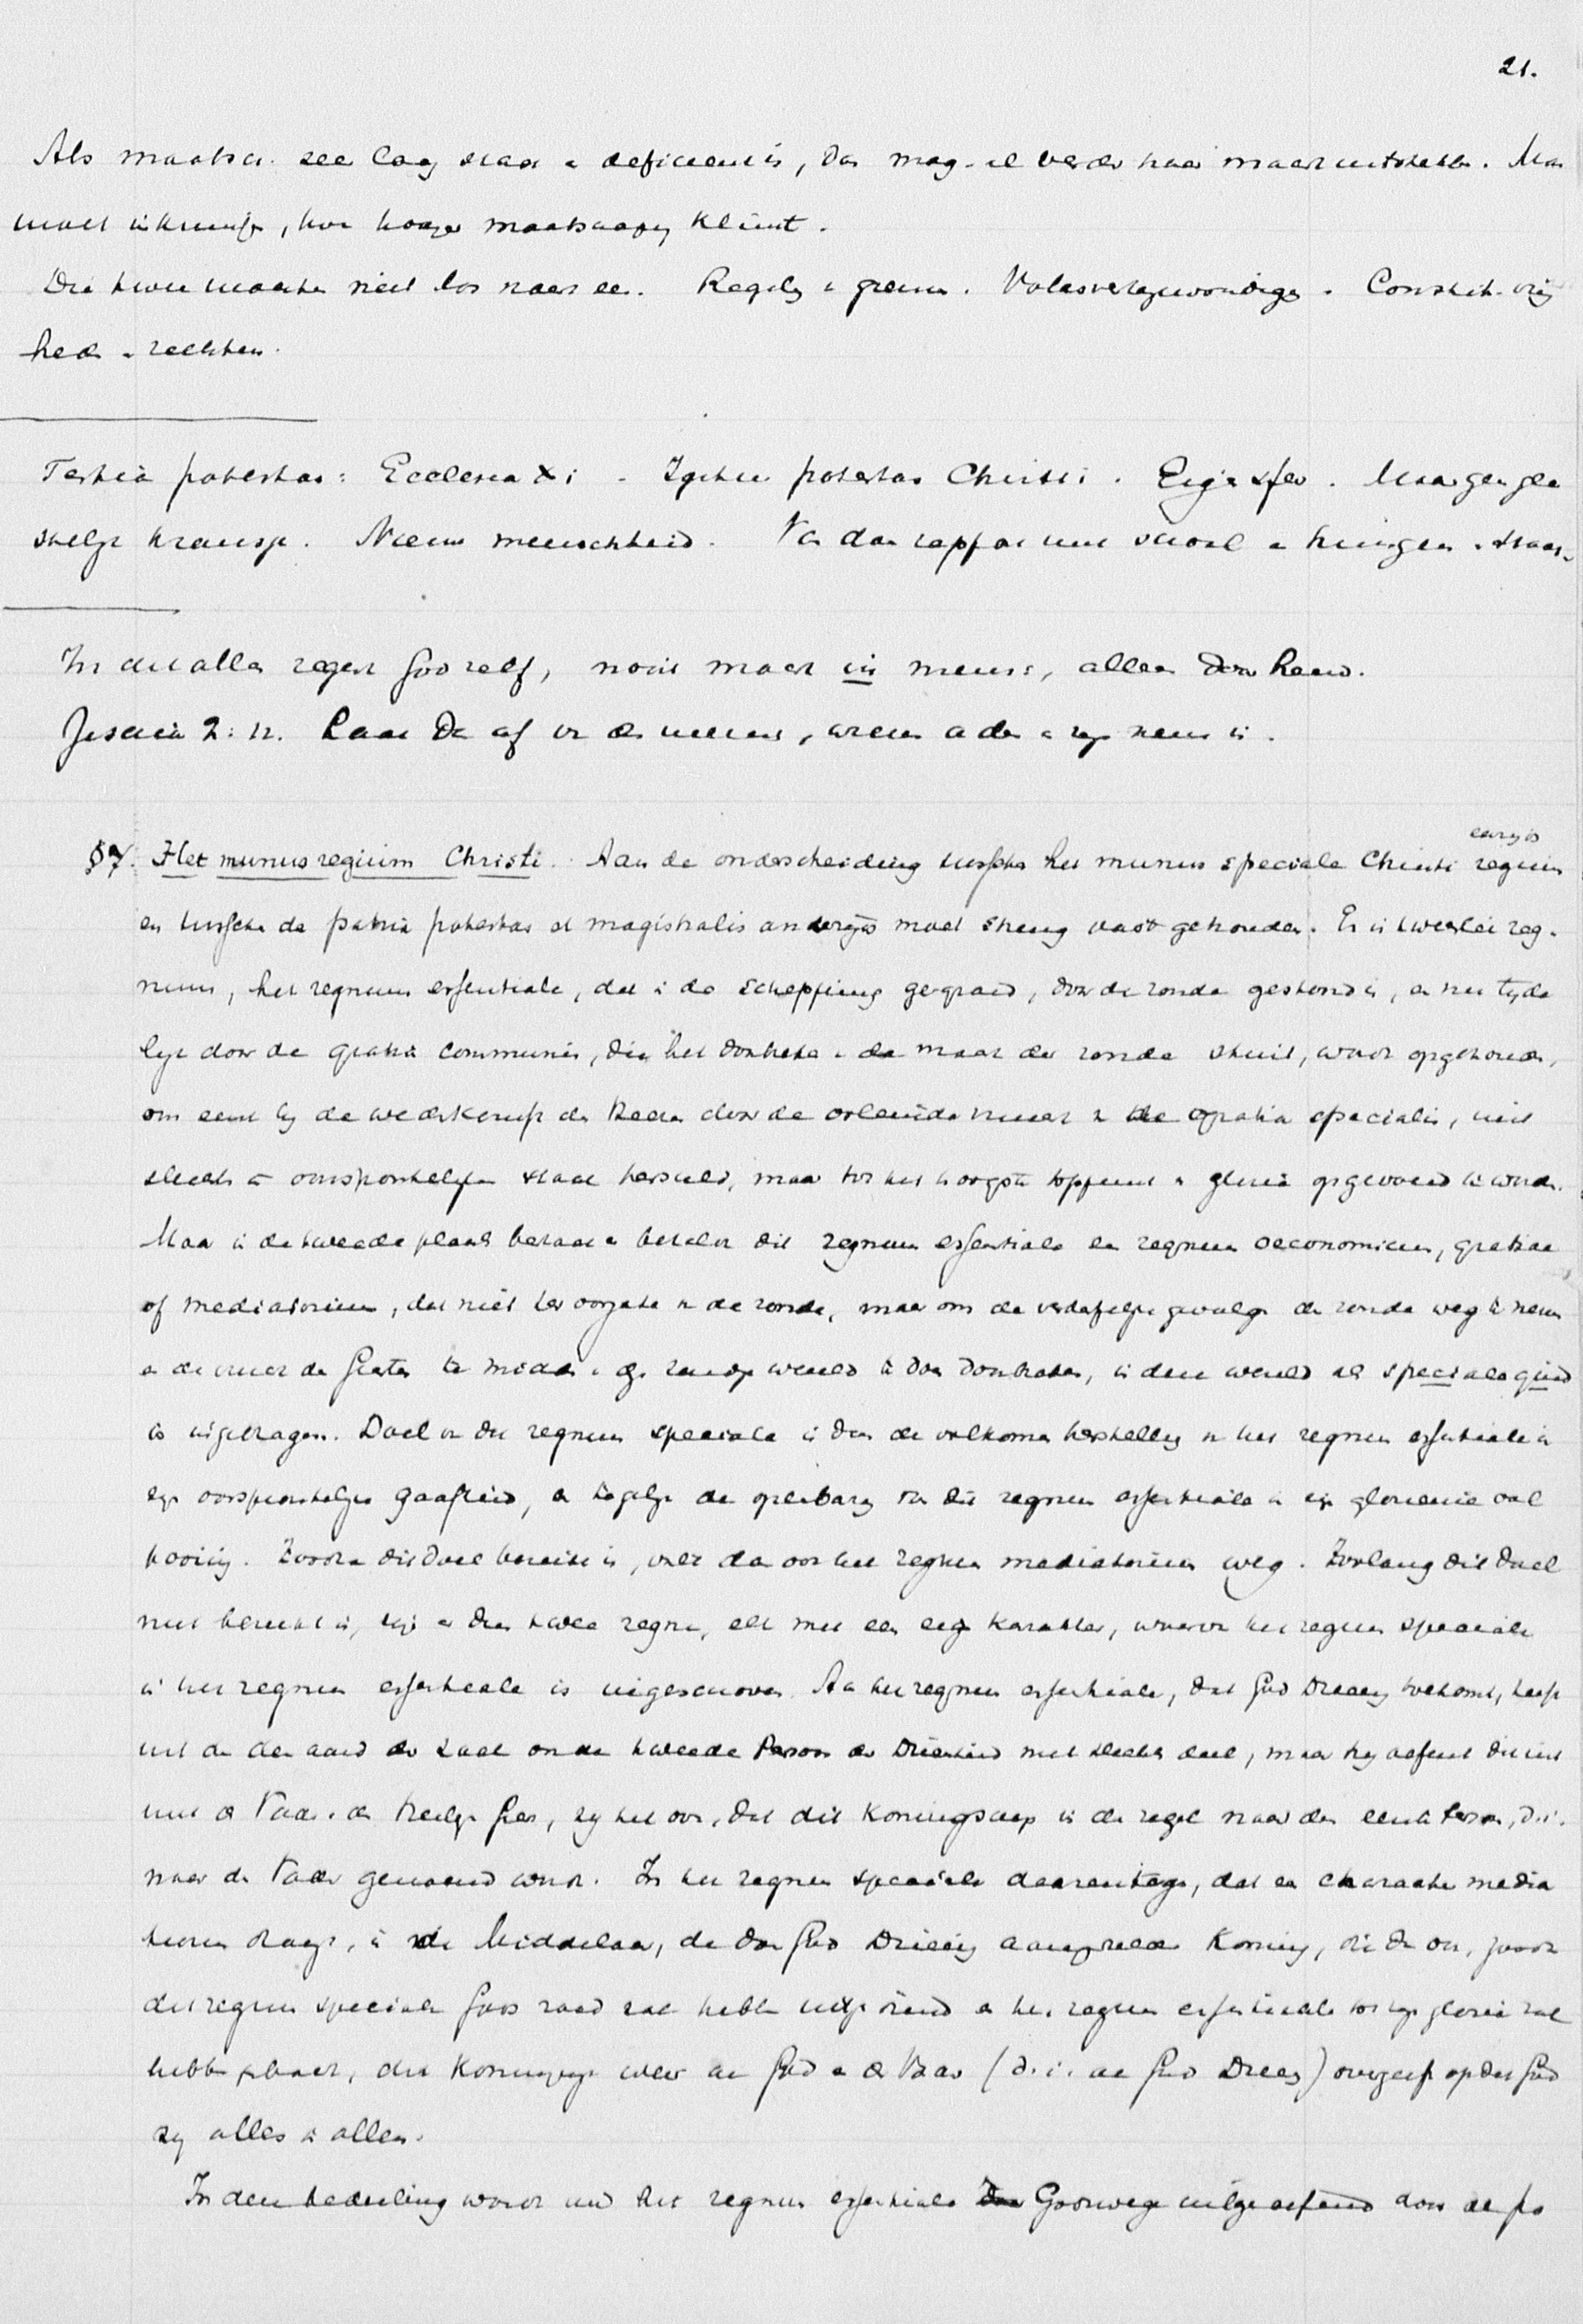 21.
Als maatsch. zeer laag staat en deficient is, dan mag - il verder haar macht uitstrekken. Maar
moet inkrimpen, hoe hooger maatschappij klimt.
Die twee machten niet los naast een. Regeling en grenzen. Volksvertegenwoordiging. Constit. vrij
heden en rechten.
Tertia potestas: Ecclesia Xi - potestas Christi. Eigen sfeer. Maar geen
Nieuwe menschheid. Van daar rapport met school en huisgezin en staat.
In dit alles regeert God zelf, nooit maar in mensch, alleen door hem.
Jesaia 2: 22. Laat Dan af van den mensch, wiens adem in zijn neus is.
§7. Het munus regium Christi. Aan de onderscheiding tusschen het munus speciale Christi regium eenerzijds
en tusschen de patria potestas et magistralis anderzijds moet streng vast gehouden. Er is tweeërlei reg-
num, het regnum essentiale, dat in de schepping gegrond, door de zonde gestoord is, en nu tijde
lijk door de gratia communis, die het doorbreken van de macht der zonde stuit, wordt opgehouden,
om eens bij de wederkomst des Heeren door de van de gratia specialis, niet
slechts in oorspronkelijken staat hersteld, maar tot het hoogste toppunt van glorie opgevoerd te worden.
Maar in de tweede plaats bestaat er buiten dit regnum essentiale een regnum oeconomicum, gratiae
of mediatorium, dat niet ter oorzake van de zonde, maar om de verderfelijke gevolgen der zonde weg te nemen
en de macht der Gratia te midden van de zondige wereld te doen doorbreken, in deze wereld als speciale quid
is ingedragen. Doel van dit regnum speciale is dan de volkomen herstelling van het regnum essentiale in
zijn oorspronkelijke gaafheid, en tegelijk de openbaring van dit regnum essentiale in zijn glorierijke vol
tooiing. Zoodra dit doel bereikt is, valt dan ook het regnum mediatorium weg. Zoolang dit doel
niet bereikt is, zijn er dus twee regna, elk met een eigen karakter, waarvan het regnum speciale
in het regnum essentiale is ingeschoven. Aan het regnum essentiale, dat God Drieeenig toekomt, heeft
uit den aard der zaak ook de tweede Persoon der Drieëenheid niet slechts deel, maar hij oefent dit uit
met den Vader en den Heiligen Geest, zij het ook, dat dit koningschap in den regel naar den eersten Persoon, d.i.
naar den Vader genoemd wordt. In het regnum speciale daarentegen, dat een character media
torium draagt, is de Middelaar, de door God Drieëenig aangestelde Koning, die dan ook, zoodra
dit regnum speciale Gods raad zal hebben uitgediend en het regnum essentiale tot zijn glorie zal
hebben gebracht, dit Koningschap weer aan God en den Vader (d.i. aan God Drieeenig) overgeeft opdat God
zij alles in allen.
In deze bedeeling wordt nu het regnum essentiale Godswege uitgeoefend door de po